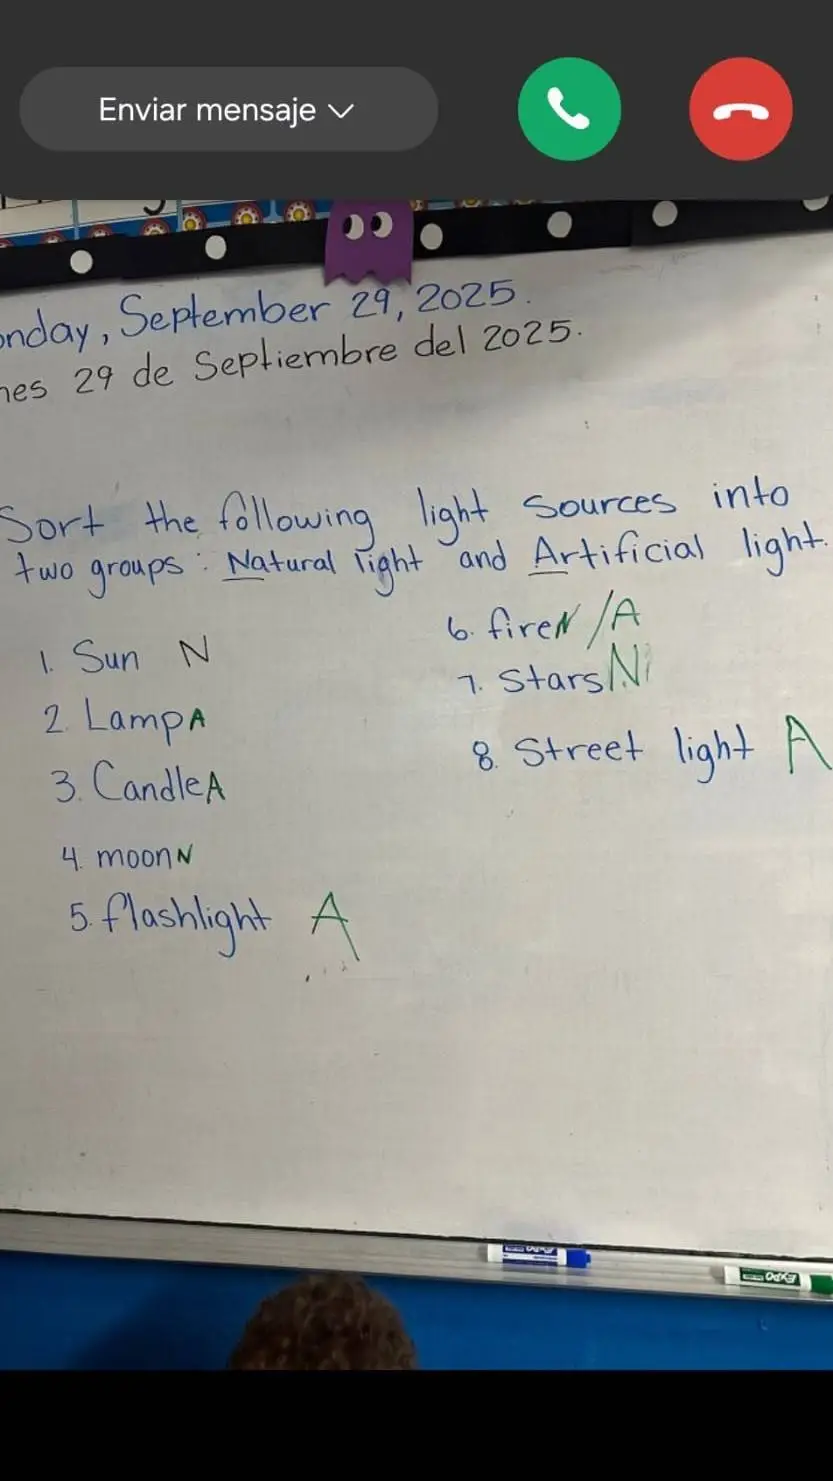 Enviar mensaje
onday, September 29, 2025.
nes 29 de Septiembre del 2025.
Sort the following light sources into
two groups: Natural light and Artificial light.
1. Sun N
2. Lamp A
3. Candle A
4. moon N
5. flashlight A
6. fire N/A
7. Stars N
8. Street light A
EXPO
EXPO